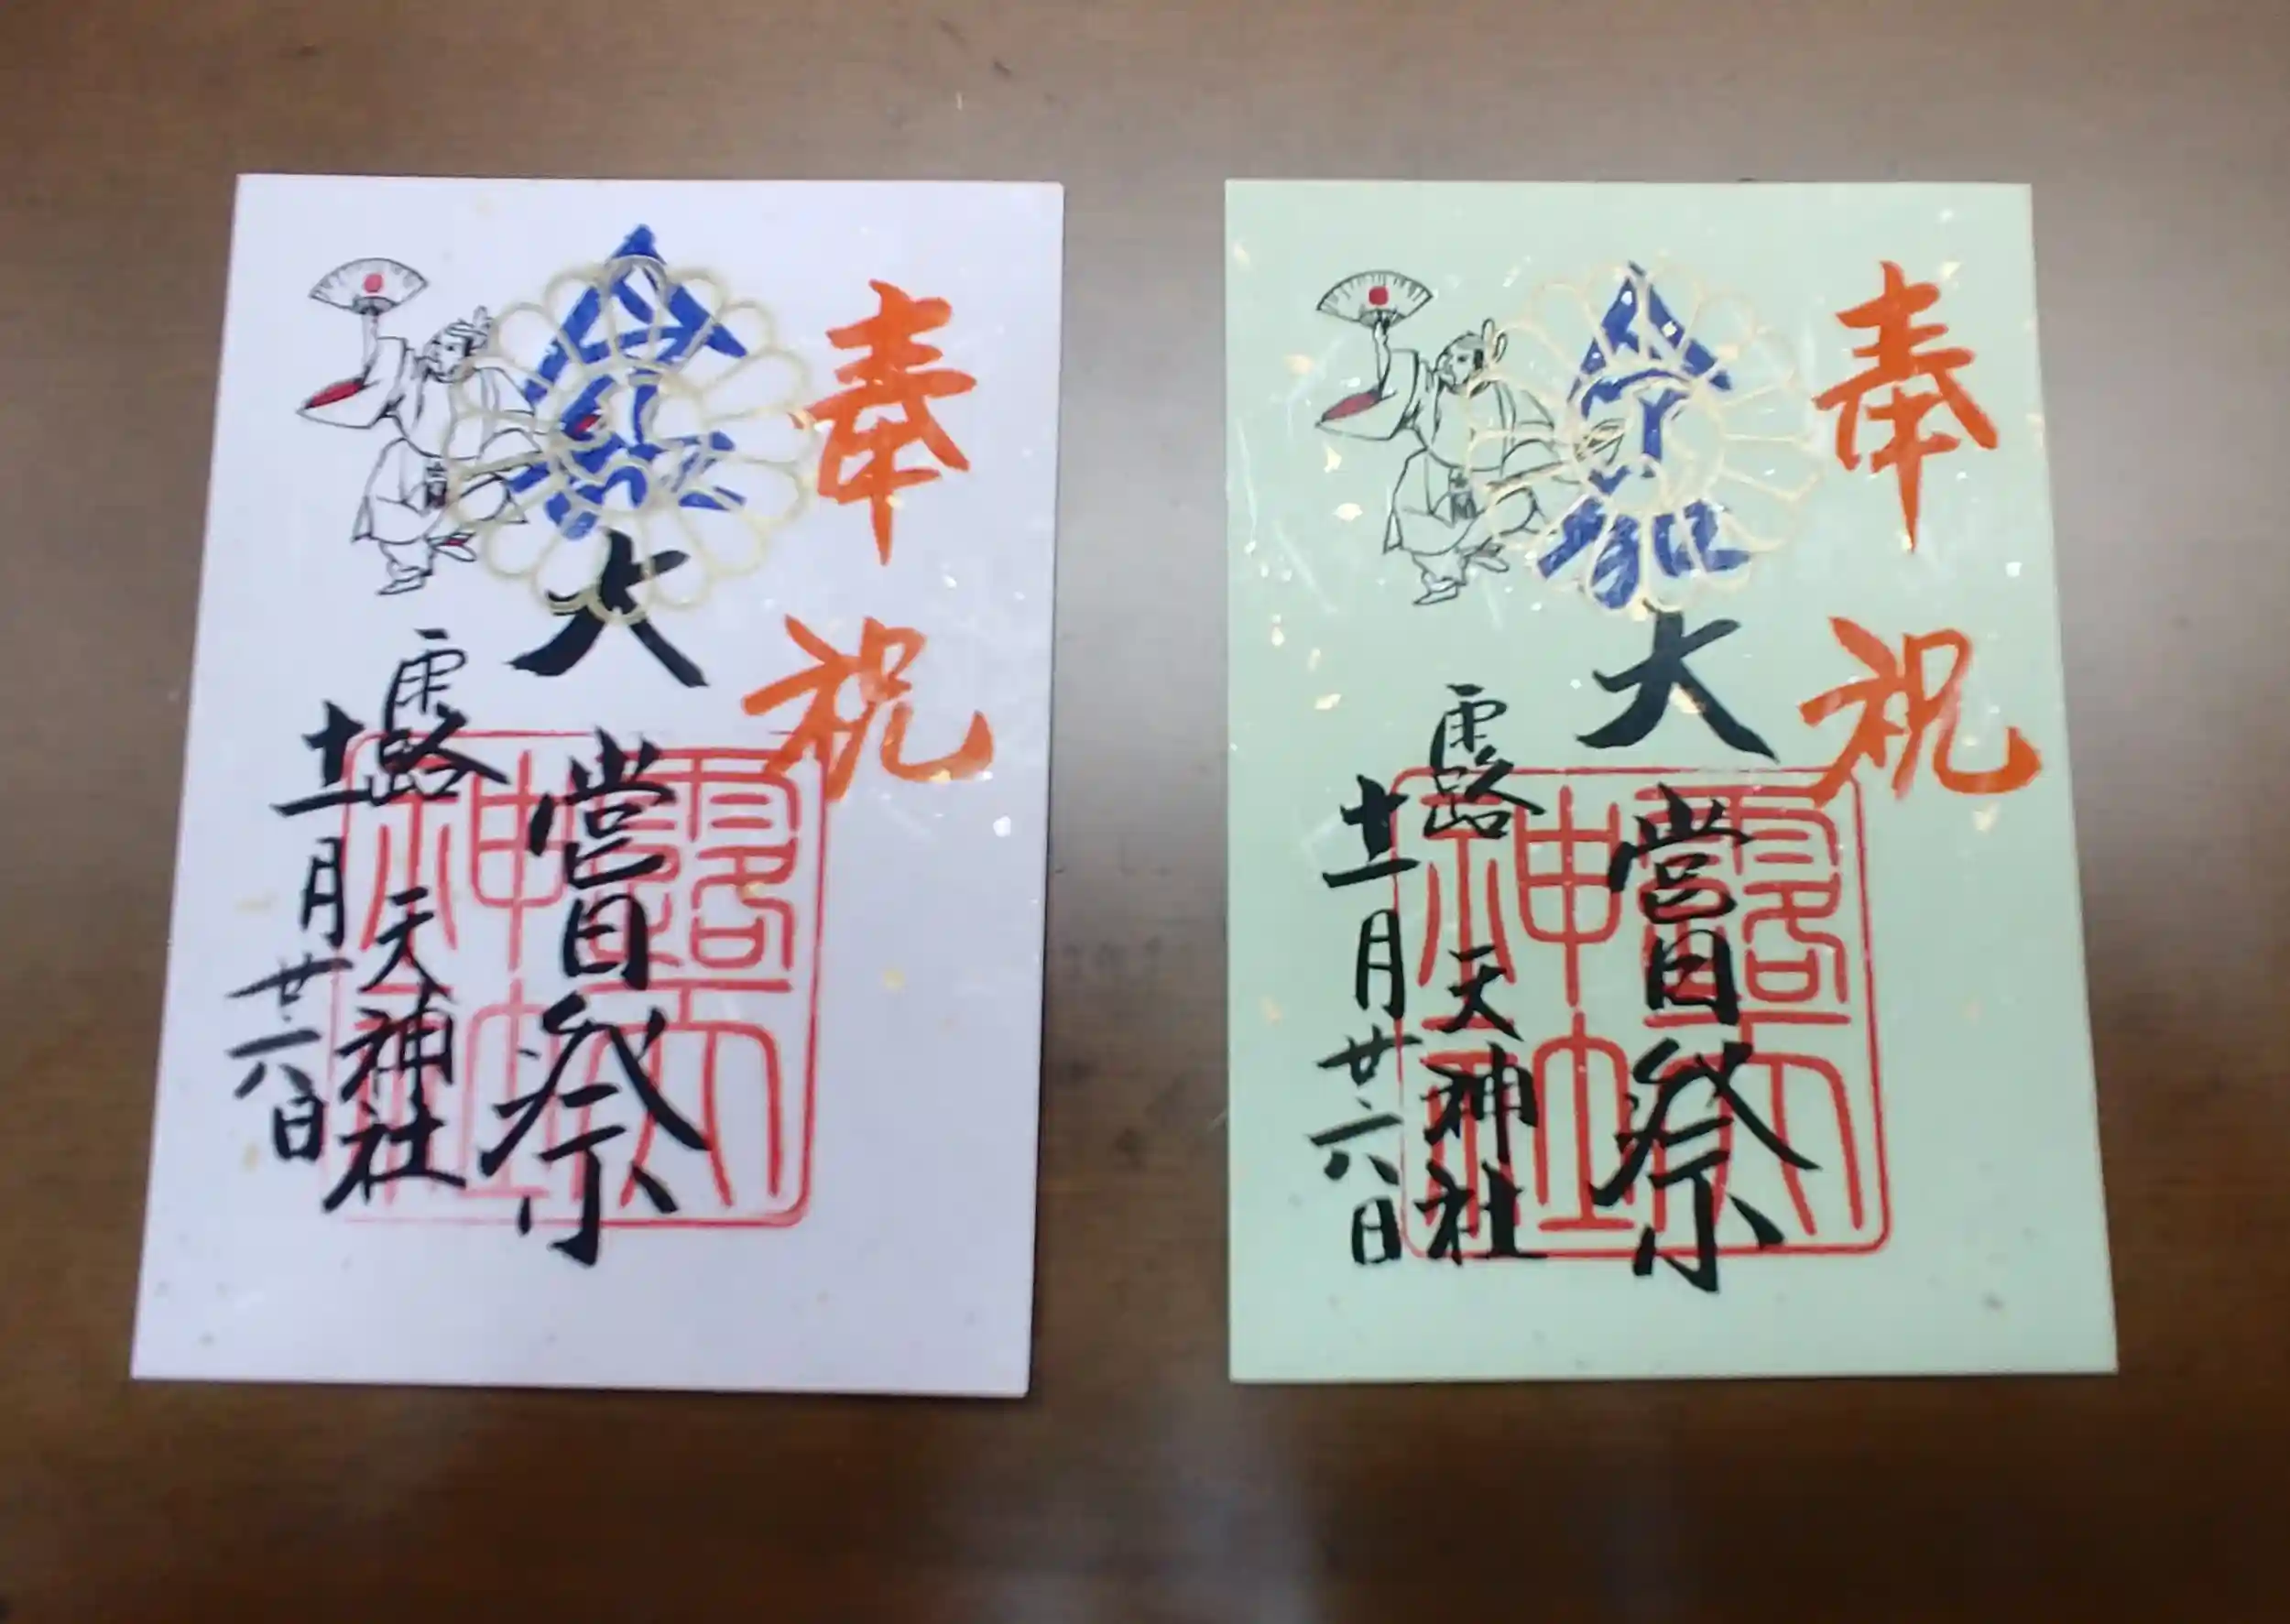 奉祝
大嘗祭
露天神社
十一月廿六日
露天
神社
奉祝
大嘗祭
露天神社
十一月廿六日
露天
神社